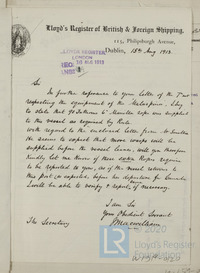 Lloyd's Register of British & Foreign Shipping,
113, Philipsburgh Avenue,
Dublin, 15th Aug 1913.
LLOYD'S REGISTER
LONDON
16 AUG 1913
REC
Sir
In further reference to your letter of the 7th inst
respecting the equipment of the I beg
to state that 90 fathoms 6" Manilla rope was supplied to
the vessel as required by Rule.
With regard to the enclosed letter from
he seems to expect that more warps will be
supplied before the vessel leaves, will you therefore
kindly let me know if these extra Ropes require
to be reported to you, as if the vessel returns to
this port as expected before her departure for Canada
I will be able to verify & report if necessary.
I am Sir
Your Obedient Servant
The Secretary
© 2020
Lloyd's Register